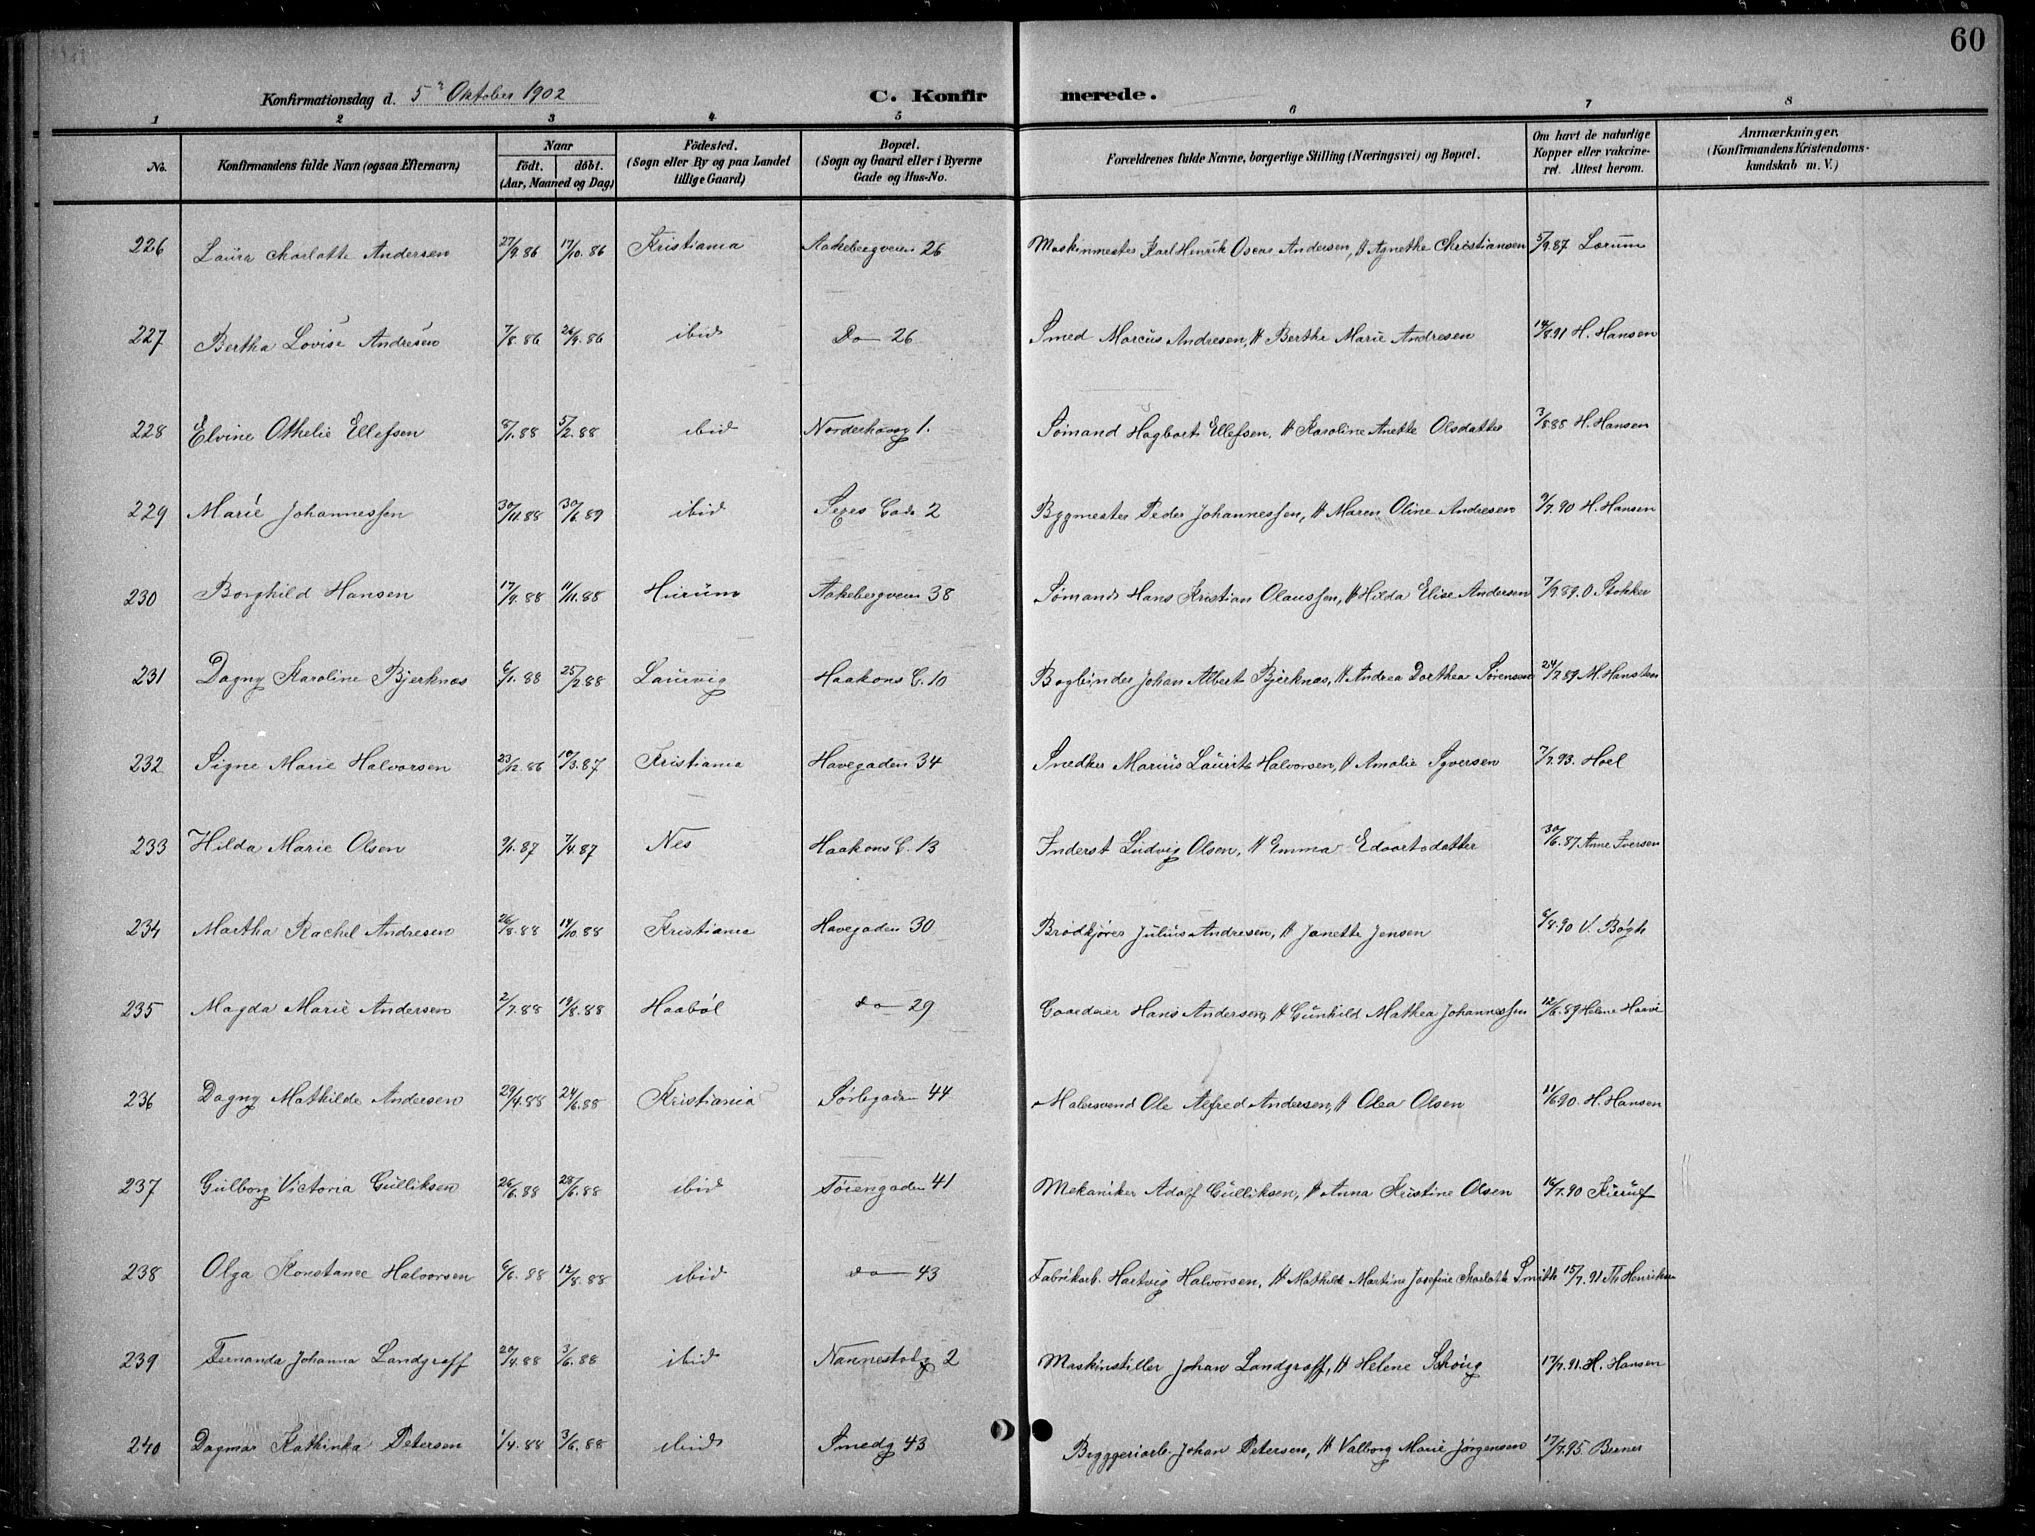 60
Konfirmationsdag d. 5' Oktober 1902 C. Konfirmerede.
1 2 3 4 5 6 7 8
No. Konfirmandens fulde Navn (ogsaa Efternavn) Naar födt. döbt. (Aar, Maaned og Dag) Födested. (Sogn eller By og paa Landet tillige Gaard) Bopæl. (Sogn og Gaard eller i Byerne Gade og Hus-No. Forældrenes fulde Navne, borgerlige Stilling (Næringsvei) og Bopæl. Om havt de naturlige Kopper eller vakcineret. Attest herom. Anmærkninger. (Konfirmandens Kristendomskundskab m. V.)
226 Laura Charlotte Andersen 27/9.86 17/10.86 Kristiania Aakebergveien 26 Maskinmester Karl Henrik Oscar Andersen, H Agnethe Christiansen 5/9.87 Lørum
227 Bertha Lovise Andresen 7/8.86 26/9.86 ibid Do 26 Smed Marcus Andresen, H Berthe Marie Andresen 14/8.91 H. Hansen
228 Elvine Othelie Ellefsen 8/1.88 5/2.88 ibid Norderhovg 1. Sømand Hagbart Ellefsen, H Karoline Anette Olsdatter 3/8.88 H. Hansen
229 Marie Johannessen 30/11.88 30/6.89 ibid Sexes Gade 2 Bygmester Peder Johannessen, H Maren Oline Andresen 9/7.90 H. Hansen
230 Borghild Hansen 17/9.88 11/11.88 Hurum Aakebergveien 38 Sømand Hans Kristian Olaussen, H Hilda Elise Andersen 7/9.89. O Stokker
231 Dagny Karoline Bjerknæs 6/1.88 25/2.88 Laurvig Haakons G. 10 Bogbinder Johan Albert Bjerknæs, H Andrea Dorthea Sørensen 24/7.89 M. Hansten
232 Signe Marie Halvorsen 23/12.86 10/3.87 Kristiania Havegaden 34 Snedker Marius Laurits Halvorsen, H Amalie Syversen 7/7.93. Hoel
233 Hilda Marie Olsen 9/1.87 7/4.87 Nes Haakons G. 13 Inderst Ludvig Olsen, H Emma Edvartsdatter 30/6.87 Anne Iversen
234 Martha Rachel Andresen 26/8.88 14/10.88 Kristiania Havegaden 30 Brødkjører Julius Andresen, H Janette Jensen 6/8.90 V. Bøgh
235 Magda Marie Andersen 2/7.88 19/8.88 Haabøl do 29 Gaardeier Hans Andersen, H Gunhild Mathea Johannessen 12/6.89 Helene Haavi
236 Dagny Mathilde Andersen 29/4.88 24/6.88 Kristiania Sørlegaden 44 Malersvend Ole Alfred Andersen, H Olea Olsen 11/6.90. H. Hansen
237 Gulborg Victoria Gulliksen 26/6.88 28/6.88 ibid Tøiengaden 41 Mekaniker Adolf Gulliksen, H Anna Kristine Olsen 16/7.90 Kierulf
238 Olga Konstance Halvorsen 6/6.88 12/8.88 ibid do 43 Fabrikarb. Hartvig Halvorsen, H Mathild Martine Josefine Charlotte Smith 15/7.91 Th Henriksen
239 Fernanda Johanna Landgraff 20/4.88 3/6.88 ibid Nannestadg 2 Maskinstiller Johan Landgraff, H Helene Schöng 17/7.91. H. Hansen
240 Dagmar Kathinka Petersen 1/4.88 3/6.88 ibid Smedg 43 Bryggeriarb. Johan Petersen, H Valborg Marie Jørgensen 17/7.95 Berner